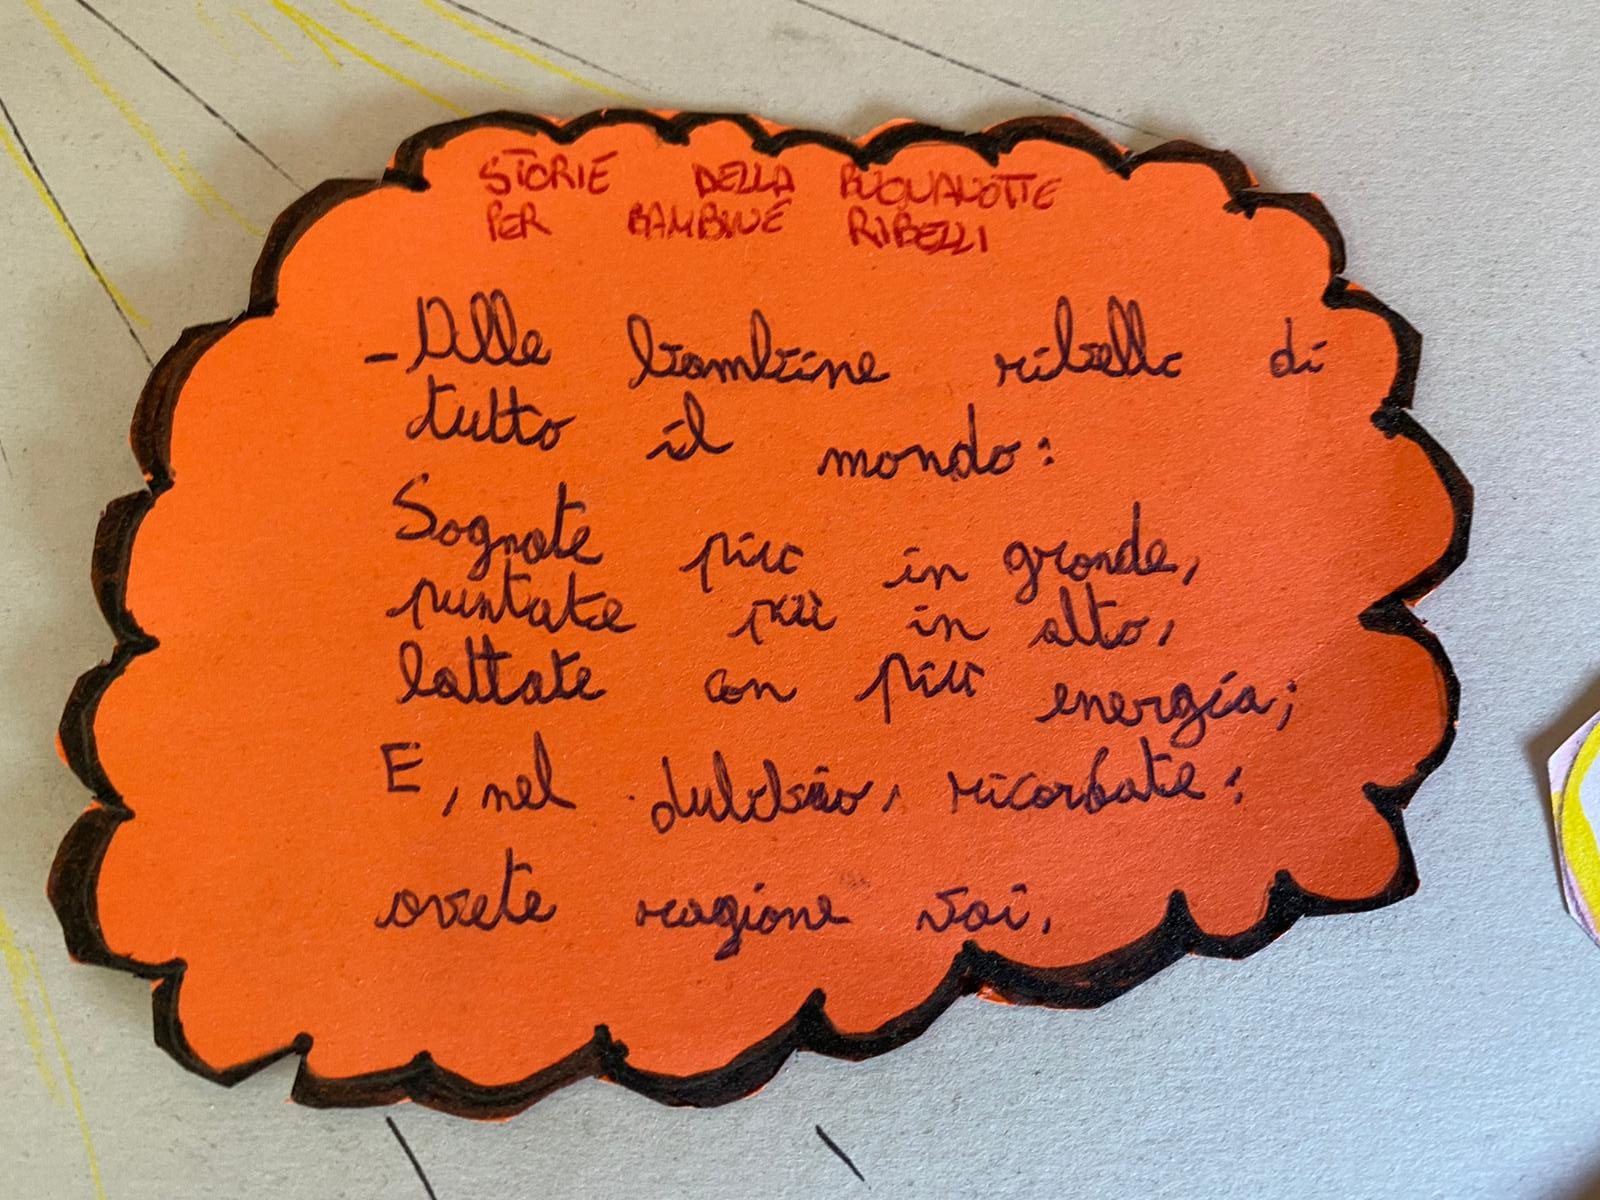 STORIE DELLA BUONANOTTE
PER BAMBINE RIBELLI
- Alle bambine ribelli di
tutto il mondo:
Sognate più in grande,
puntate più in alto,
lottate con più energia;
E, nel dubbio, ricordate:
avete ragione voi.